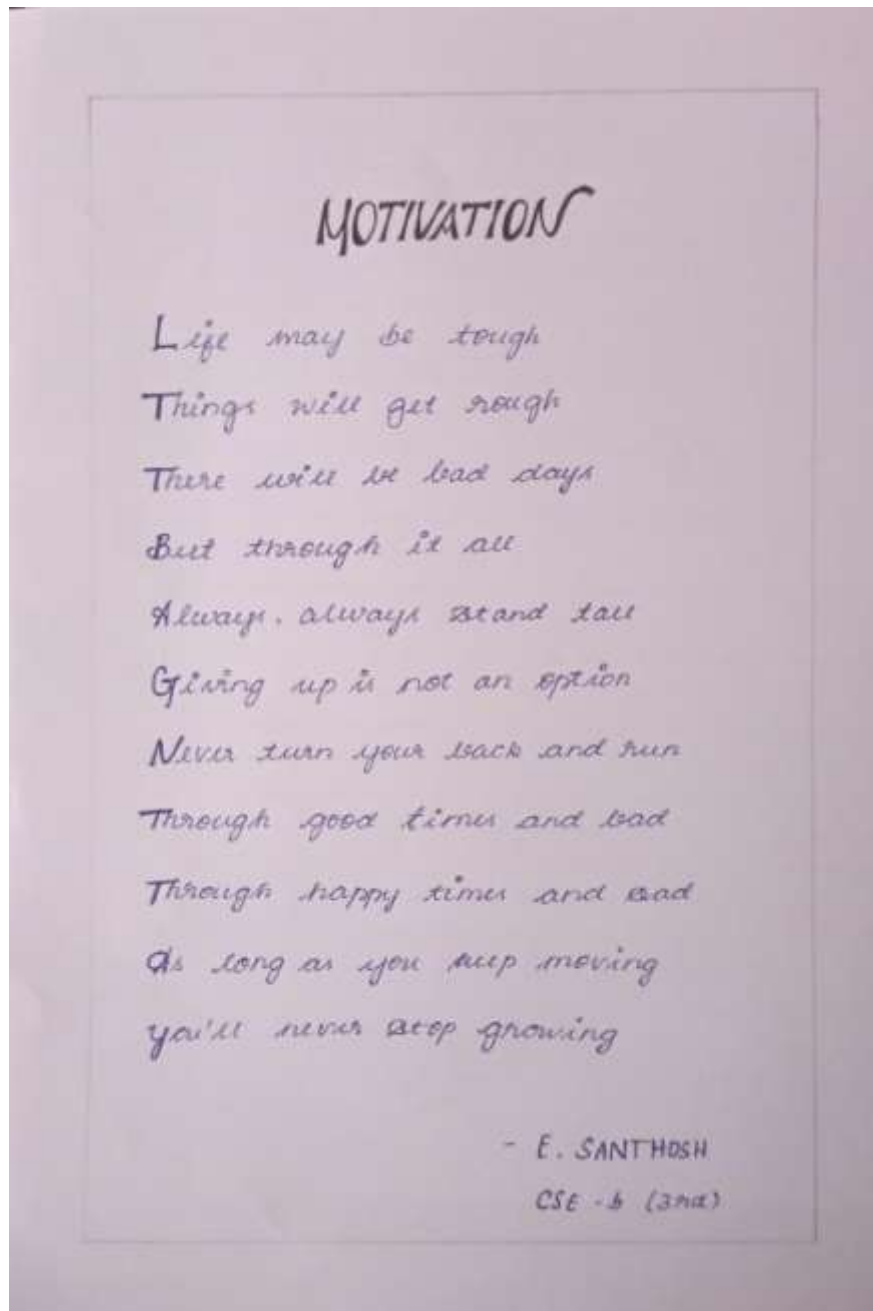 MOTIVATION
Life may be tough
Things will get rough
There will be bad days
But through it all
Always, always stand tall
Giving up is not an option
Never turn your back and run
Through good times and bad
Through happy times and sad
As long as you keep moving
you'll never stop growing
- E. SANTHOSH
CSE - b (3rd)